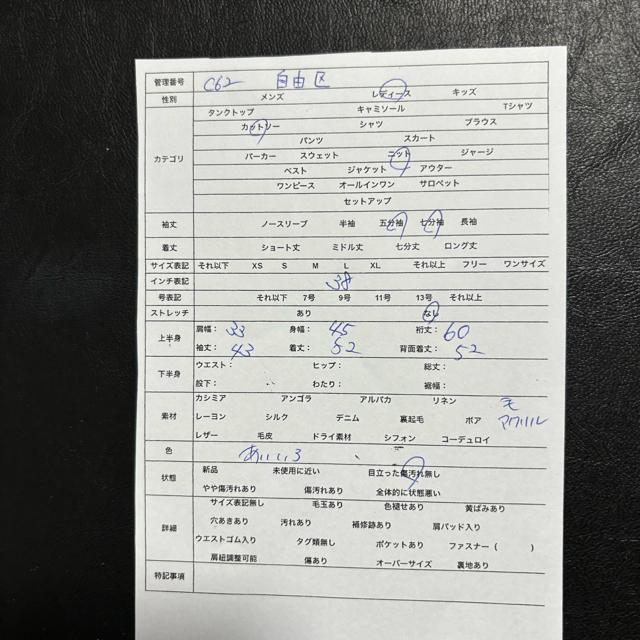 管理番号 C62 自由区
性別 メンズ レディース キッズ
カテゴリ
タンクトップ キャミソール Tシャツ
カットソー シャツ ブラウス
パンツ スカート
パーカー スウェット ニット ジャージ
ベスト ジャケット アウター
ワンピース オールインワン サロペット
セットアップ
袖丈 ノースリーブ 半袖 五分袖 七分袖 長袖
着丈 ショート丈 ミドル丈 七分丈 ロング丈
サイズ表記 それ以下 XS S M L XL それ以上 フリー ワンサイズ
インチ表記 38
号表記 それ以下 7号 9号 11号 13号 それ以上
ストレッチ あり なし
上半身 肩幅: 33 身幅: 45 裄丈: 60
袖丈: 43 着丈: 52 背面着丈: 52
下半身 ウエスト: ヒップ: 総丈:
股下: わたり: 裾幅:
素材 カシミア アンゴラ アルパカ リネン 毛
レーヨン シルク デニム 裏起毛 ボア アクリル
レザー 毛皮 ドライ素材 シフォン コーデュロイ
色 あいいろ
状態 新品 未使用に近い 目立った傷汚れ無し
やや傷汚れあり 傷汚れあり 全体的に状態悪い
詳細 サイズ表記無し 毛玉あり 色褪せあり 黄ばみあり
穴あきあり 汚れあり 補修跡あり 肩パッド入り
ウエストゴム入り タグ類無し ポケットあり ファスナー ( )
肩紐調整可能 傷あり オーバーサイズ 裏地あり
特記事項